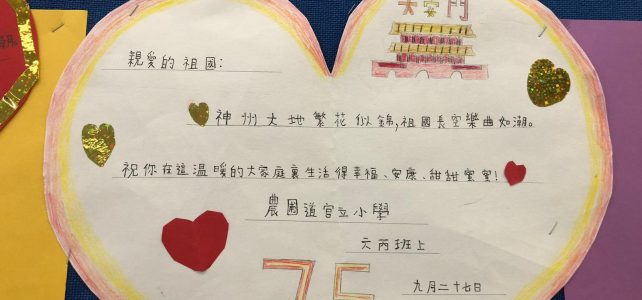 天安門
親愛的祖國：
神州大地繁花似錦，祖國長空樂曲如潮。
祝你在這溫暖的大家庭裏生活得幸福、安康、甜甜蜜蜜！
農圃道官立小學
六丙班上
75
九月二十七日